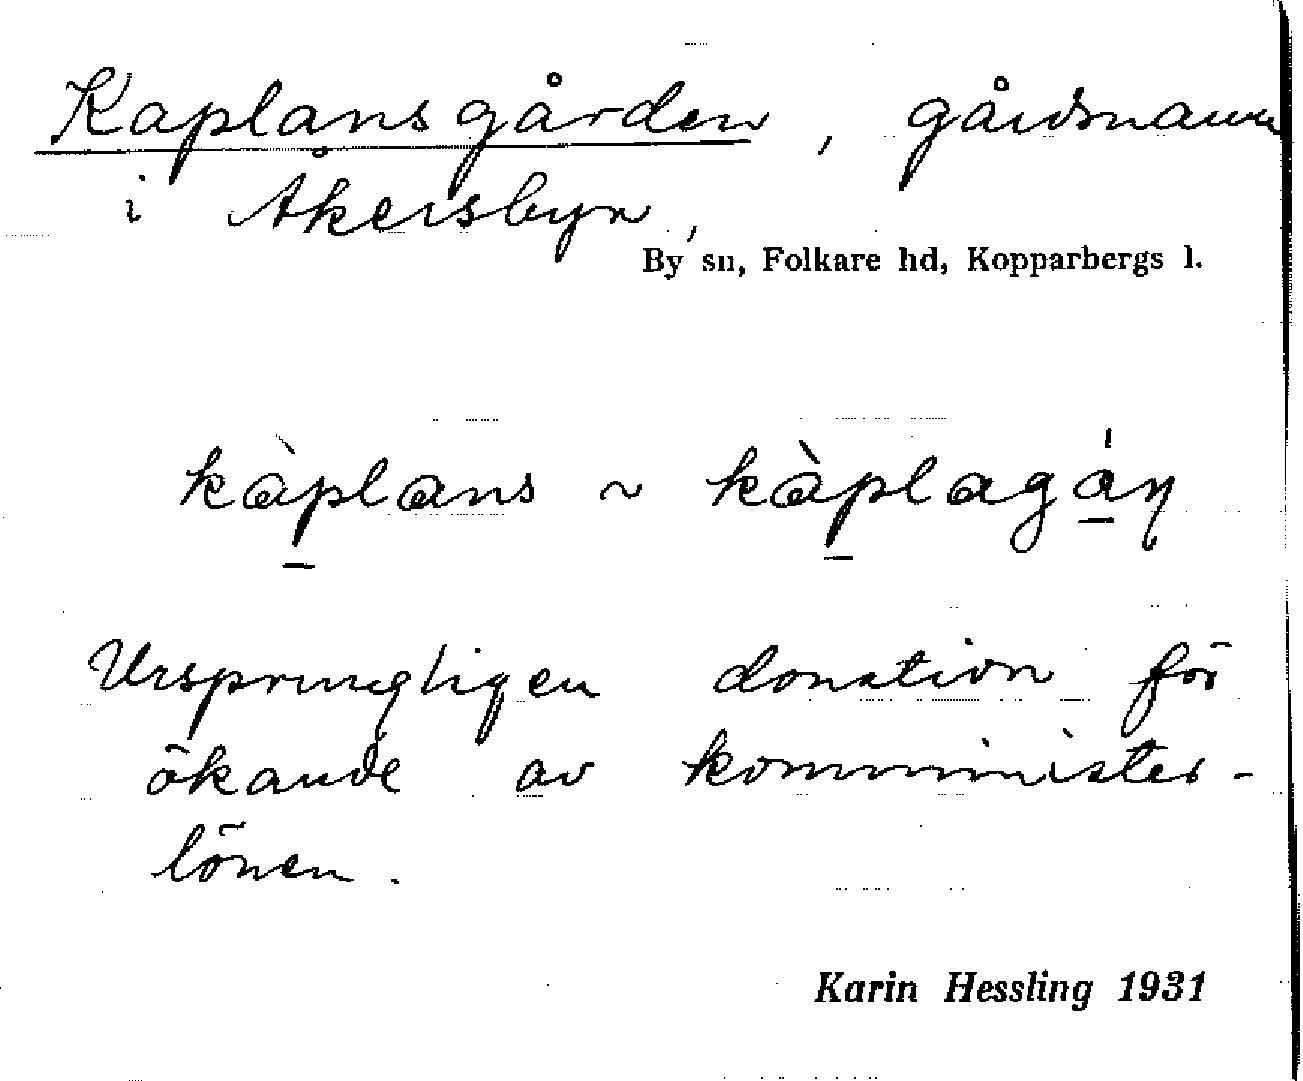 Kaplansgården, gårdsnamn
i Åkersbyn,
By sn, Folkare hd, Kopparbergs l.
kàplans ~ kàplagáṇ
Ursprungligen donation för
ökande av komminister-
lönen.
Karin Hessling 1931